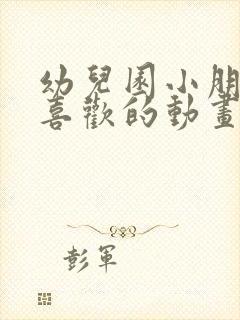 幼兒園小朋
喜歡的動畫
彭軍